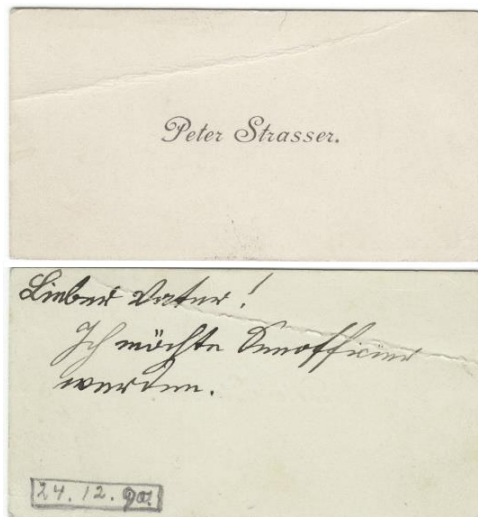 Peter Strasser.
Lieber Vater!
Ich möchte Seeofficier
werden.
24.12.90.